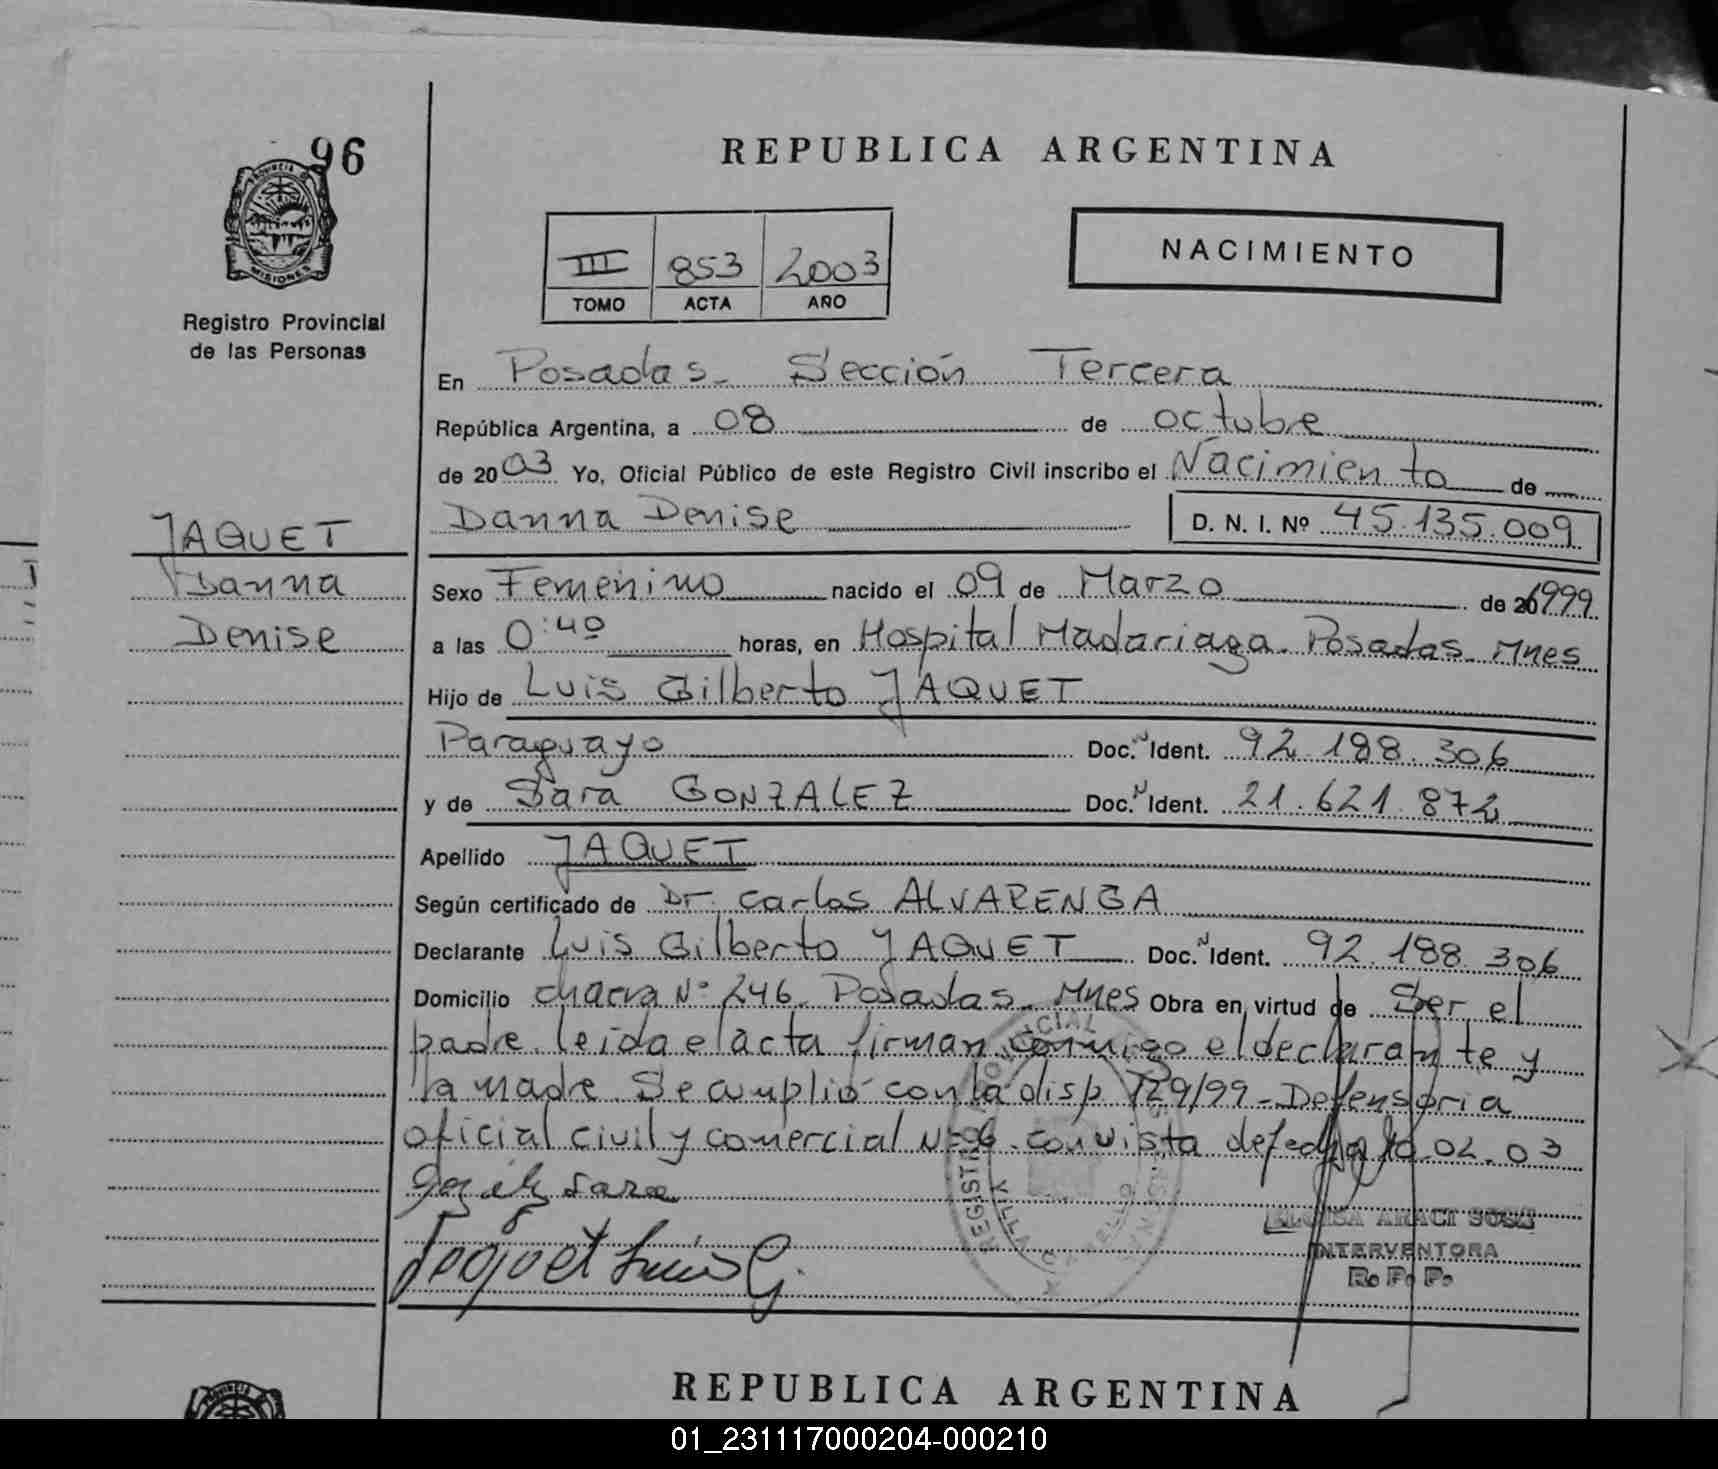 96
PROVINCIA D
MISIONES
Registro Provincial
de las Personas
REPUBLICA ARGENTINA
III 853 2003
TOMO ACTA AÑO
NACIMIENTO
En Posadas - Sección Tercera
República Argentina, a 08 de octubre
de 2003 Yo, Oficial Público de este Registro Civil inscribo el Nacimiento de
Danna Denise D. N. I. Nº 45.135.009
JAQUET
Danna
Denise
Sexo Femenino nacido el 09 de Marzo de 1999
a las 0:40 horas, en Hospital Madariaga. Posadas - Mnes
Hijo de Luis Gilberto JAQUET
Paraguayo Doc. N Ident. 92.188.306
y de Sara GONZALEZ Doc. N Ident. 21.621.872
Apellido JAQUET
Según certificado de Dr. Carlos ALVARENGA
Declarante Luis Gilberto JAQUET Doc. N Ident. 92.188.306
Domicilio chacra Nº 246. Posadas - Mnes Obra en virtud de Ser el
padre. leida el acta firman conmigo el declarante y
la madre. Se cumplió con la disp. 129/99 - Defensoria
oficial civil y comercial Nº 6. con vista de fecha 02.03
Sara
Jaquet Luis G.
REGISTRO PROVINCIAL
VILLA CABELLO
ARACI SOSA
INTERVENTORA
R. P. P.
REPUBLICA ARGENTINA
01_231117000204-000210